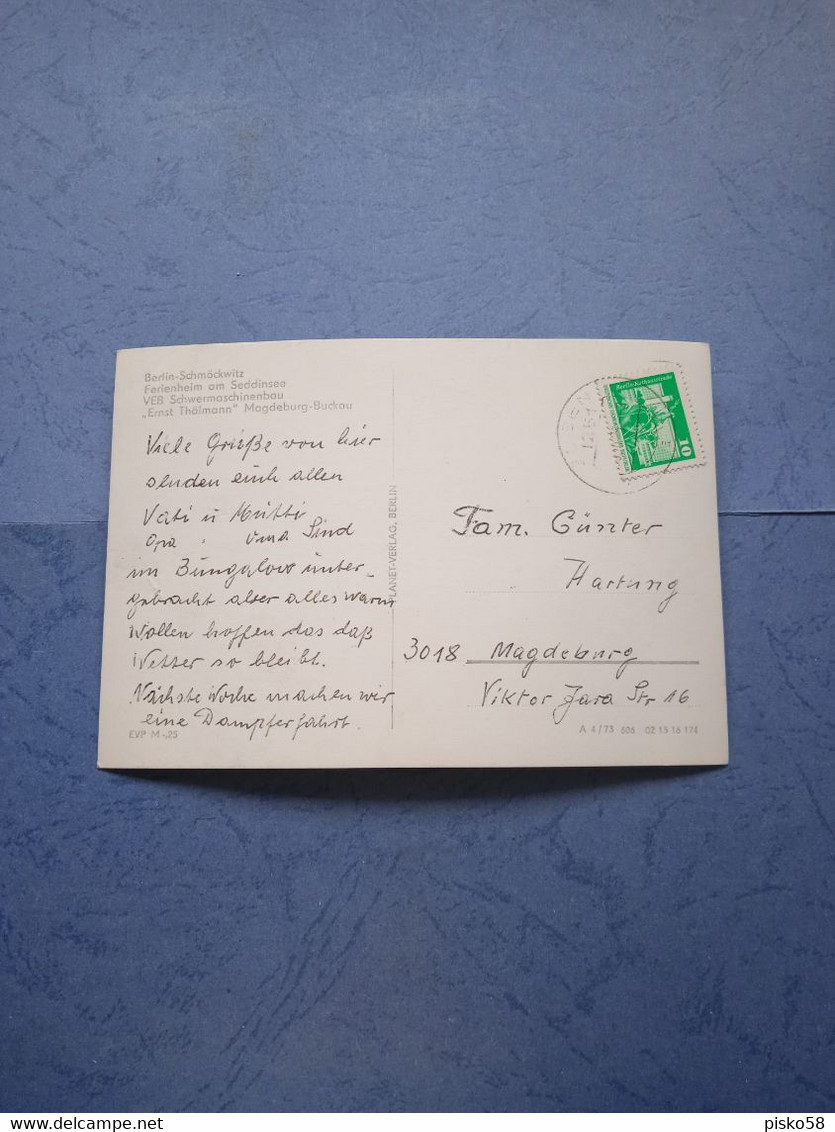 Berlin-Schmöckwitz
Ferienheim am Seddinsee
VEB Schwermaschinenbau
„Ernst Thälmann" Magdeburg-Buckau
Viele Grüße von hier
senden euch allen
Vati u Mutti
Opa " Oma Sind
im Bungalow unter-
gebracht aber alles warm
Wollen hoffen das daß
Wetter so bleibt.
Nächste Woche machen wir
eine Dampferfahrt.
EVP M -,25
PLANET-VERLAG, BERLIN
Berlin-Rathausstraße
10
Fam. Günter
Hartung
3018 Magdeburg
Viktor Jara Str 16
A 4/73 606 02 15 16 174
delcampe.net
pisko58